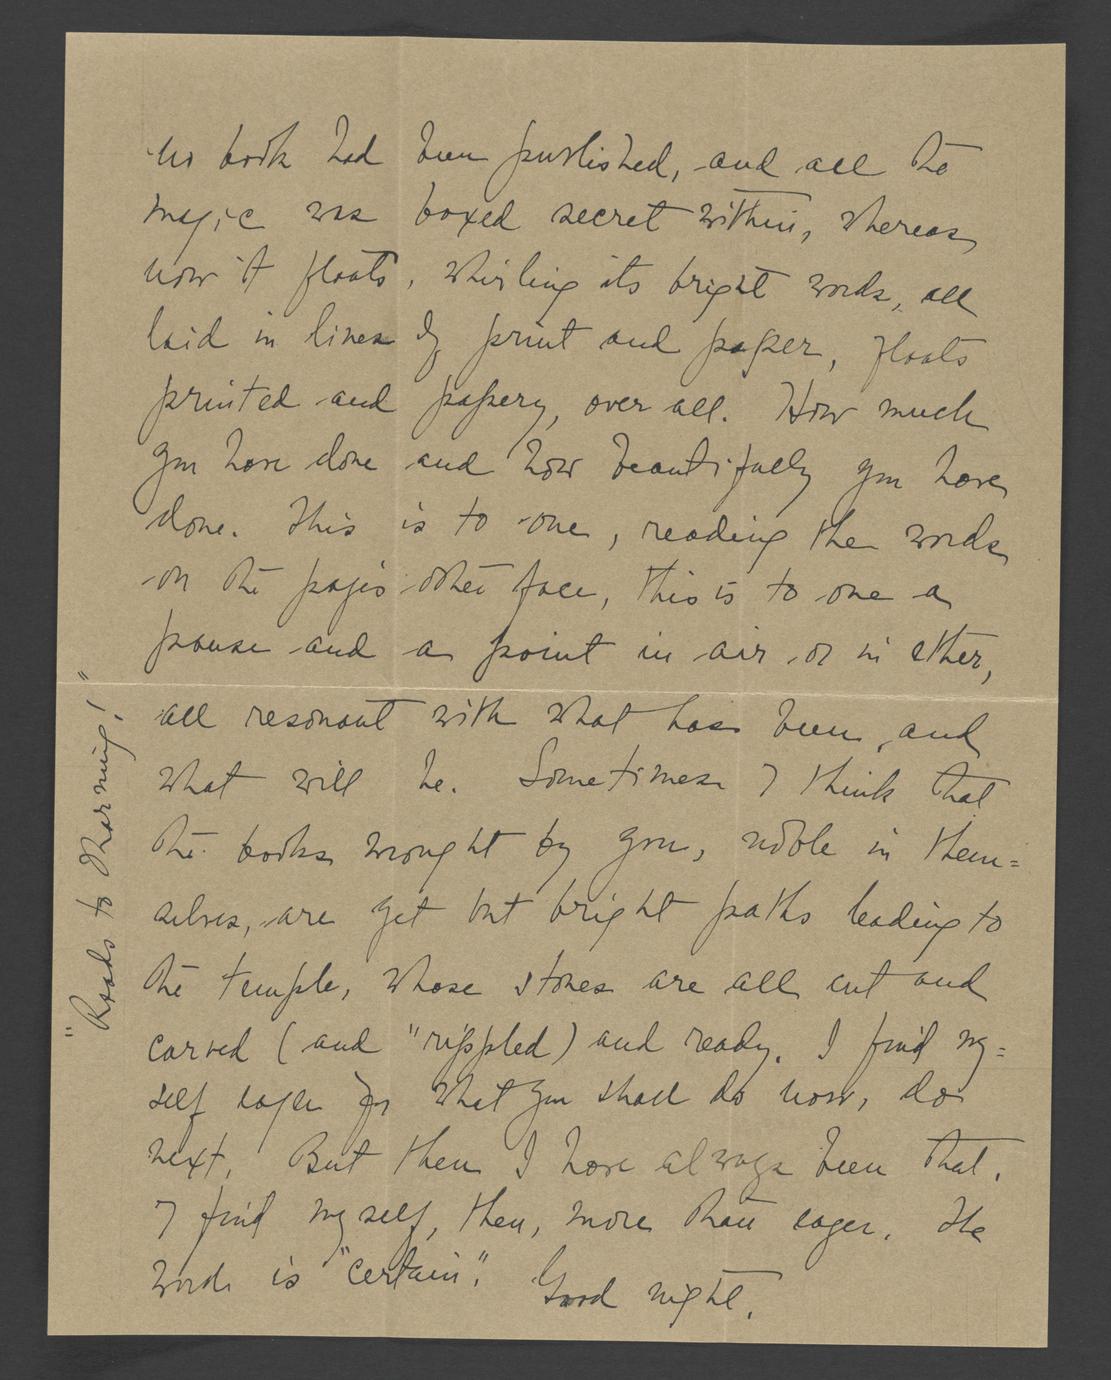 no book had been published, and all the
magic was boxed secret within, whereas
now it floats, whirling its bright words, all
laid in lines of print and paper, floats
printed and papery, over all. How much
you have done and how beautifully you have
done. This is to one, reading the words
on the page's other face, this is to one a
pause and a point in air or in ether,
all resonant with what has been, and
what will be. Sometimes I think that
the books wrought by you, noble in them=
selves, are yet but bright paths leading to
the temple, whose stones are all cut and
carved (and "rippled) and ready. I find my=
self eager for what you shall do now, do
next. But then I have always been that.
I find myself, then, more than eager. The
word is "certain". Good night.
"Roads to Charming!"